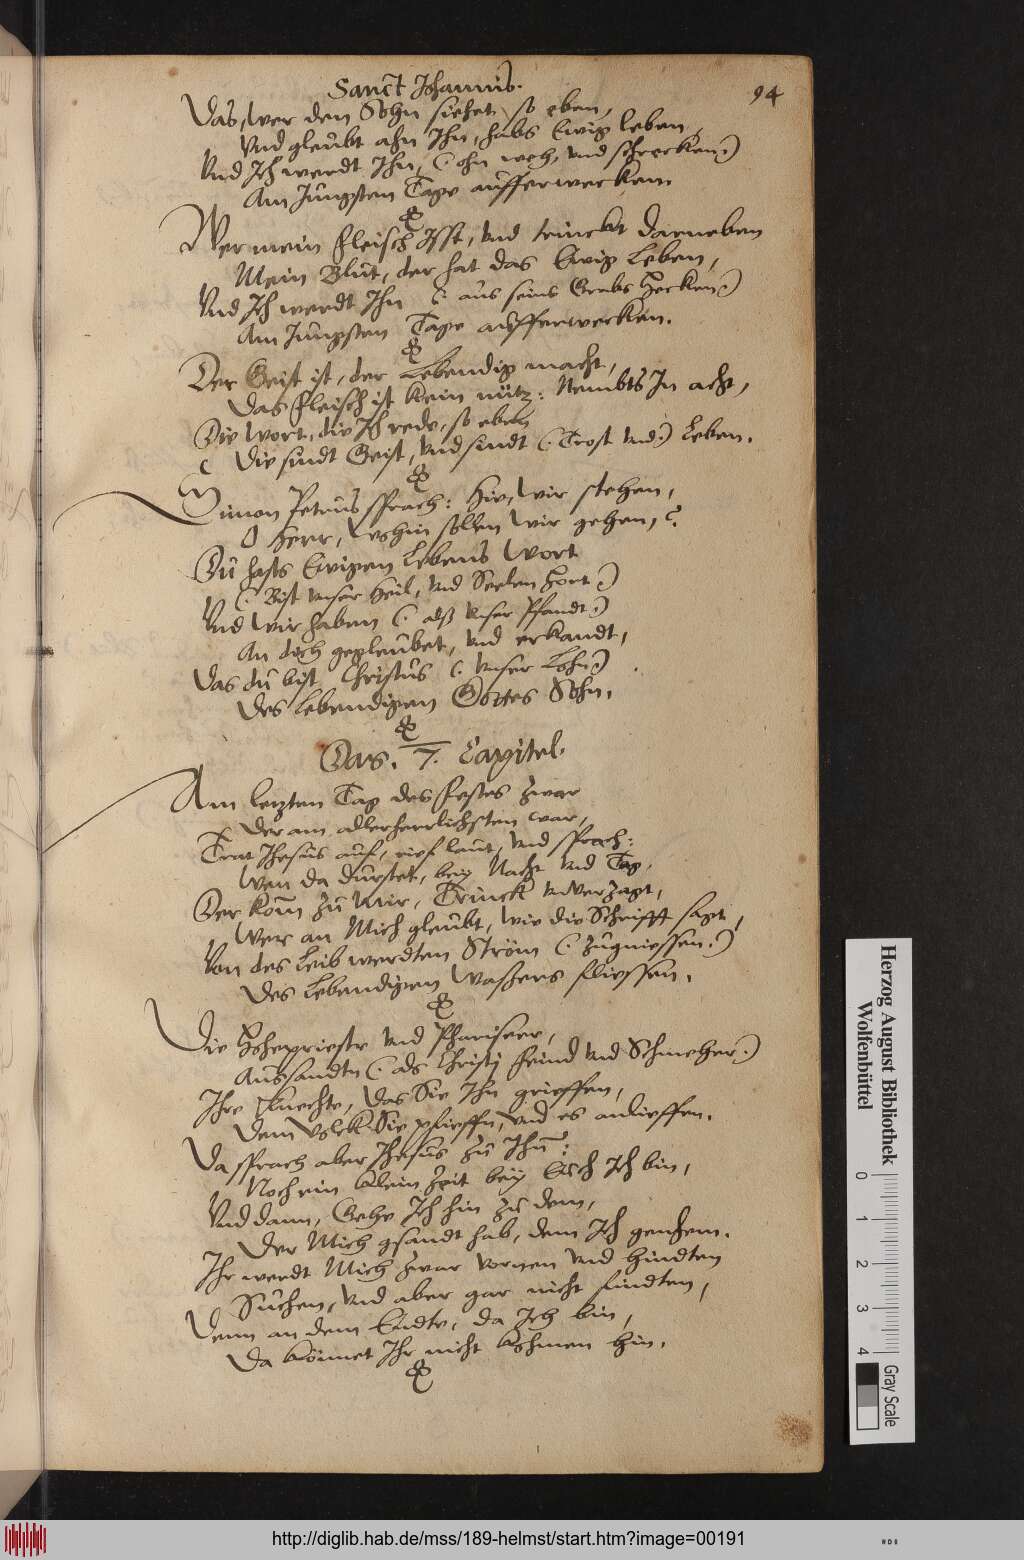 Sanct Johannis.
94
Das, wer den Sohn siehet, so eben,
Vnd gleubt ahn Ihn, habs Ewig leben,
Vnd Ich werdt Ihn, (: ohn weh, vnd schrecken:)
Am Jungsten Tage aufferwecken.
Wer mein fleisch Isst, vnd trinckt darneben
Mein Blut, der hat das Ewig Leben,
Vnd Ich werdt Ihn (: aus seins Grabs Hecken:)
Am Jungsten Tage aufferwecken.
Der Geist ist, der Lebendig macht,
Das fleisch ist kein nütz: Nembts In acht,
Die Wort, die Ich rede, so eben
Die sindt Geist, vnd sindt (: Trost vnd:) Leben.
Simon Petrus sprach: Hie, wir stehen,
O Herr, Wohin sollen wir gehen,?
Du hasts Ewigen Lebens Wort
(: Bist vnser Heil, vnd Seelen Hort:)
Vnd wir haben (: alß vnser Pfandt:)
An dich gegleubet, vnd erkandt,
Das du bist Christus (: vnser Lohn:)
Des Lebendigen Gottes Sohn.
Das. 7. Capitel.
Am letzten Tag des festes zwar
Der am adlerherrlichsten war,
Trat Jhesus auf, rief laut, vnd sprach:
Wen da durstet, bey Nacht vnd Tag,
Der kom zu Mir, Trinck vnverzagt,
Wer an Mich gleubt, wie die Schrifft sagt,
Von des Leib werdten Ström (: zugniessen:)
Des Lebendigen Wassers fliessen.
Die Hohepriestr vnd Phariseer,
Aussandtn (: als Christj feind vnd Schmeher:)
Ihre Knechte, das Sie Ihn grieffen,
Dem Volck Sie pfieffn, vnd es anlieffen.
Da sprach aber Jhesus zu Ihn:
Noch ein klein Zeit bey Euch Ich bin,
Vnd dann, Gehe Ich hin zu dem,
Der Mich gsandt hab, dem Ich genehm.
Ihr werdt Mich zwar vornen vnd hindten
Suchen, vnd aber gar nicht findten,
Denn an dem Endte, da Ich bin,
Da könnet Ihr nicht kohmen hin.
Herzog August Bibliothek
Wolfenbüttel
0 1 2 3 4
Gray Scale
http://diglib.hab.de/mss/189-helmst/start.htm?image=00191